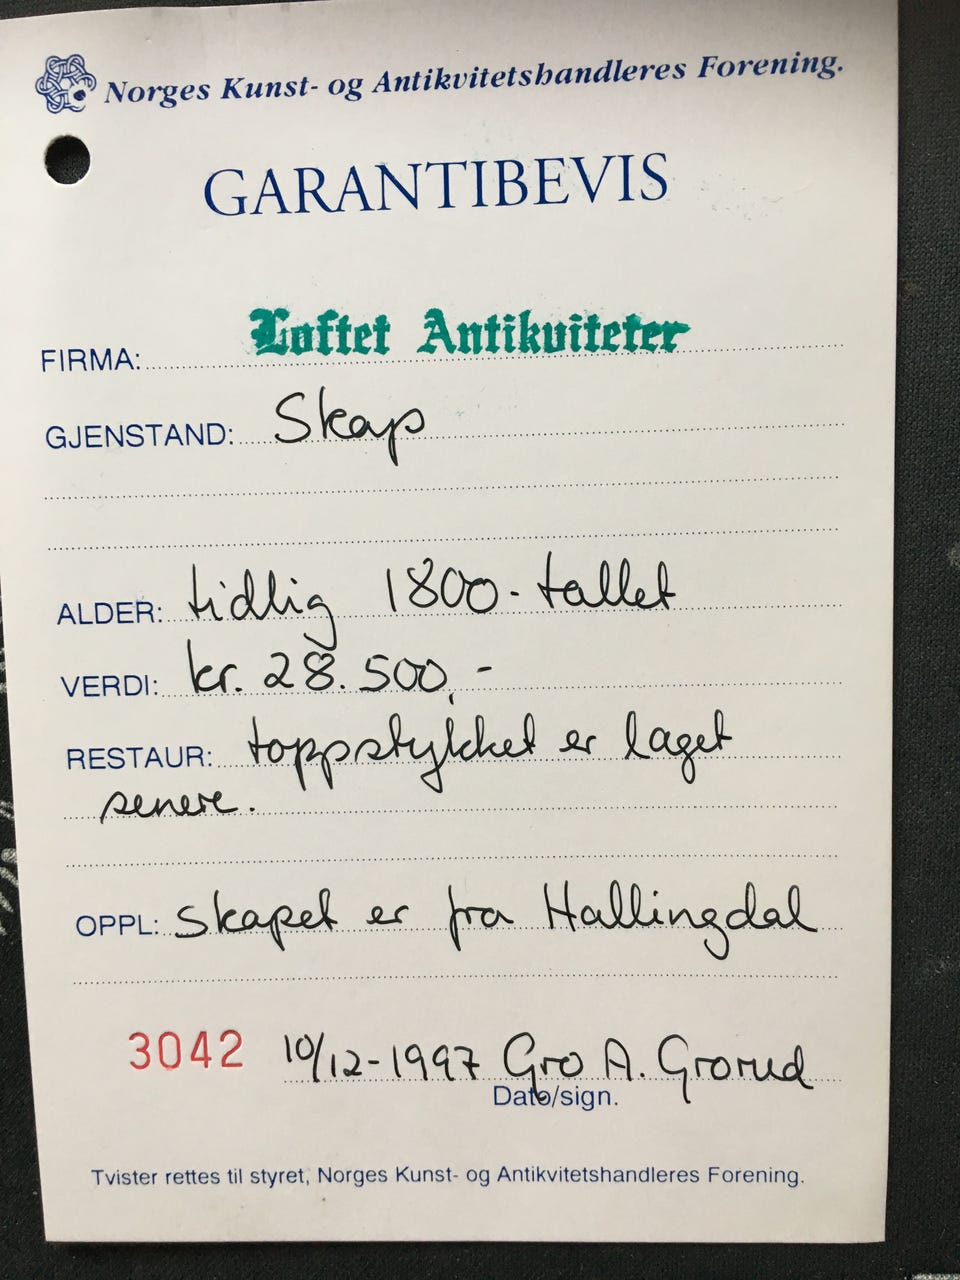 Norges Kunst- og Antikvitetshandleres Forening.
GARANTIBEVIS
FIRMA: Loftet Antikviteter
GJENSTAND: Skap
ALDER: tidlig 1800-tallet
VERDI: kr. 28.500,-
RESTAUR: toppstykket er laget
senere.
OPPL: skapet er fra Hallingdal
3042 10/12-1997 Gro A. Grorud
Dato/sign.
Tvister rettes til styret, Norges Kunst- og Antikvitetshandleres Forening.